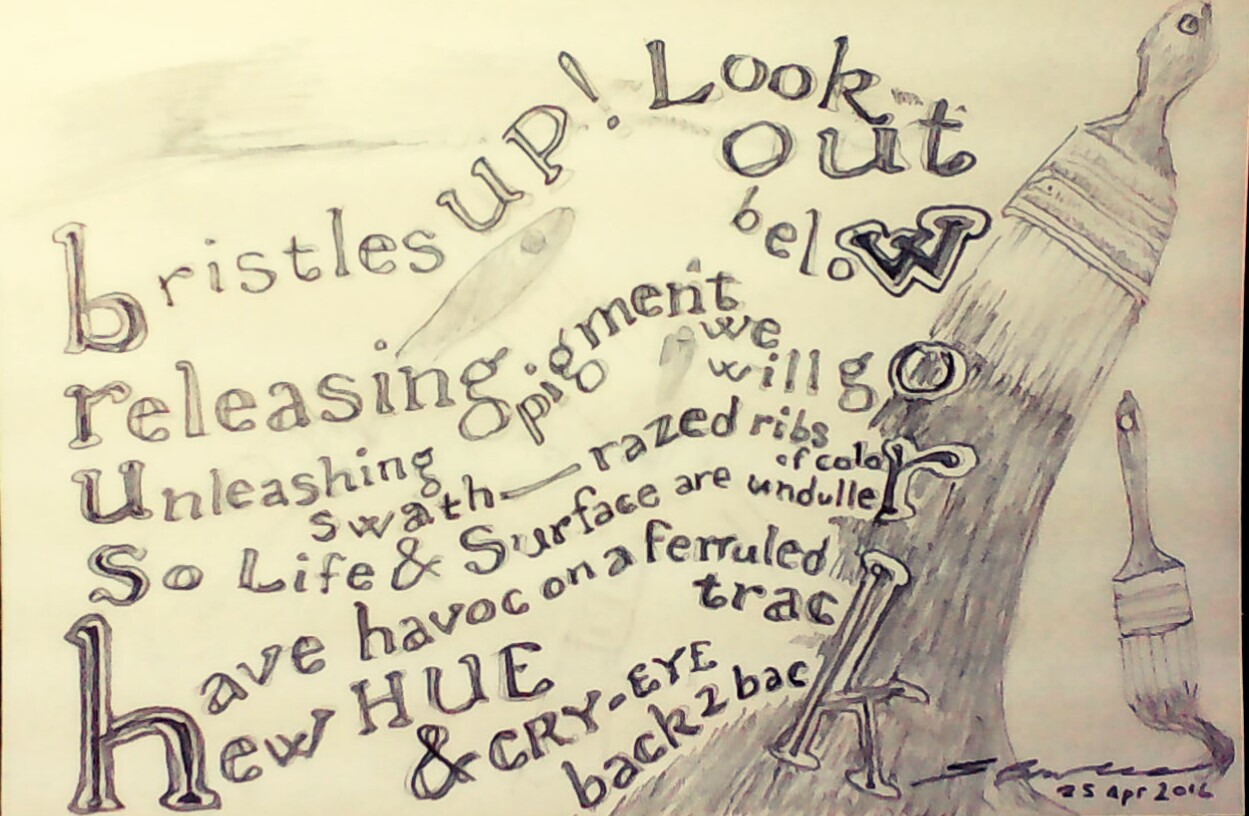 bristles up! Look out below
releasing pigment we will go
Unleashing swath—razed ribs of color
So Life & Surface are undulled
have havoc on a ferruled track
hew HUE & CRY-EYE back 2 back
25 Apr 2016